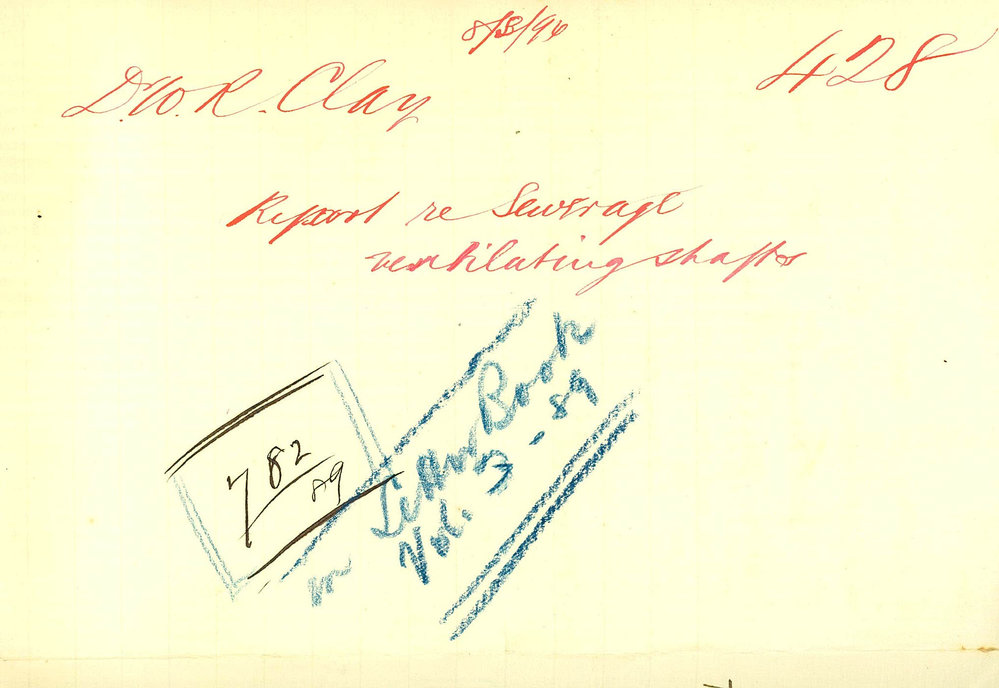 8/8/96
428
Dr. W. R. Clay
Report re Sewerage
ventilating shafts
782/89
in Letter Book
Vol. 3 - 89